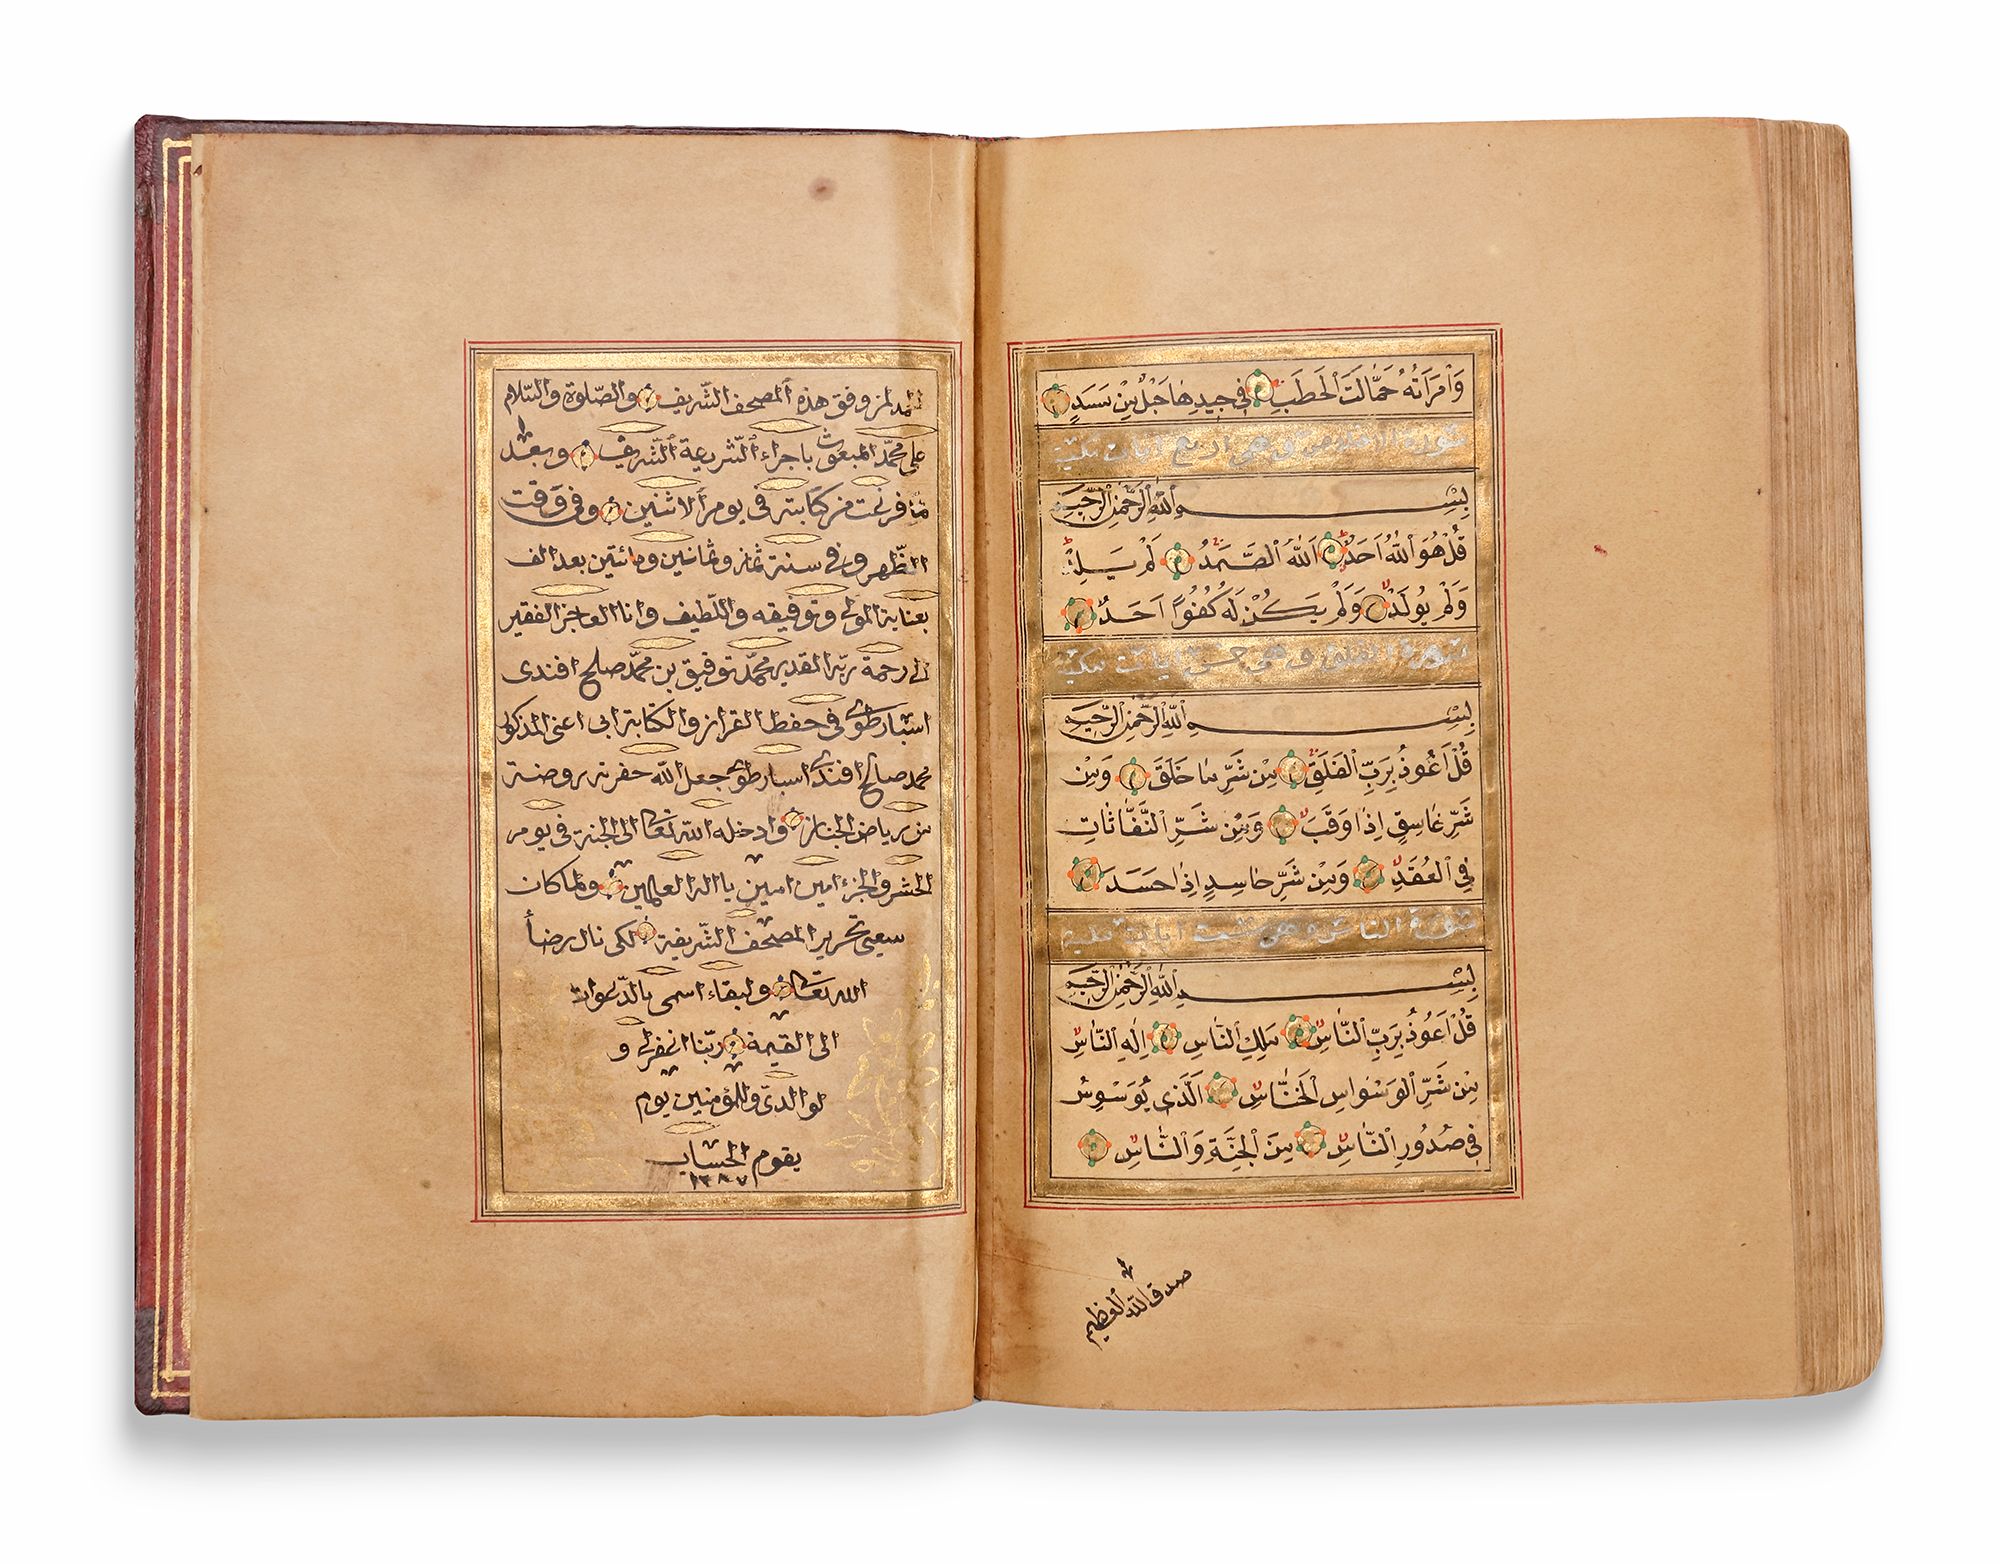 وَامْرَاَتُهُ حَمَّالَتَ الْحَطَبِ فِي جِيدِهَا حَبْلٌ مِنْ مَسَدٍ
سورة الاخلاص وهي اربع ايات مكية
بِسْمِ اللّٰهِ الرَّحْمٰنِ الرَّحِيمِ
قُلْ هُوَ اللّٰهُ اَحَدٌ اَللّٰهُ الصَّمَدُ لَمْ يَلِدْ
وَلَمْ يُولَدْ وَلَمْ يَكُنْ لَهُ كُفُوًا اَحَدٌ
سورة الفلق وهي خمس ايات مكية
بِسْمِ اللّٰهِ الرَّحْمٰنِ الرَّحِيمِ
قُلْ اَعُوذُ بِرَبِّ الْفَلَقِ مِنْ شَرِّ مَا خَلَقَ وَمِنْ
شَرِّ غَاسِقٍ اِذَا وَقَبَ وَمِنْ شَرِّ النَّفَّاثَاتِ
فِي الْعُقَدِ وَمِنْ شَرِّ حَاسِدٍ اِذَا حَسَدَ
سورة الناس وهي ستة ايات
بِسْمِ اللّٰهِ الرَّحْمٰنِ الرَّحِيمِ
قُلْ اَعُوذُ بِرَبِّ النَّاسِ مَلِكِ النَّاسِ اِلٰهِ النَّاسِ
مِنْ شَرِّ الْوَسْوَاسِ الْخَنَّاسِ اَلَّذِي يُوَسْوِسُ
فِي صُدُورِ النَّاسِ مِنَ الْجِنَّةِ وَالنَّاسِ
صدق الله العظيم
الحمد لمن وفق هذه المصحف الشّريف والصّلوة والسّلام
على محمّد المبعوث باجراء الشّريعة الشّريف وبعد
فرغت من كتابته في يوم الاثنين وفى وقت
الظّهر وفى سنة ثمان وثمانين ومائتين بعد الف
بعناية المولى وتوفيقه واللّطيف وانا العاجز الفقير
الى رحمة ربّه القدير محمّد توفيق بن محمّد صلح افندى
اسبارطوى في حفظ القران والكتابة ابى اعنى المذكور
محمد صالح افندى اسبارطوى جعل الله حفرته روضة
من رياض الجنان وادخله الله تعالى الى الجنة في يوم
الحشر والجزء امين امين يا اله العلمين ولما كان
سعيى تحرير المصحف الشّريفة لكى نال رضاء
الله تعالى ولبقاء اسمى بالدّعوات
الى القيمة ربّنا اغفرلى و
لوالدىّ وللمؤمنين يوم
يقوم الحساب
١٢٨٧